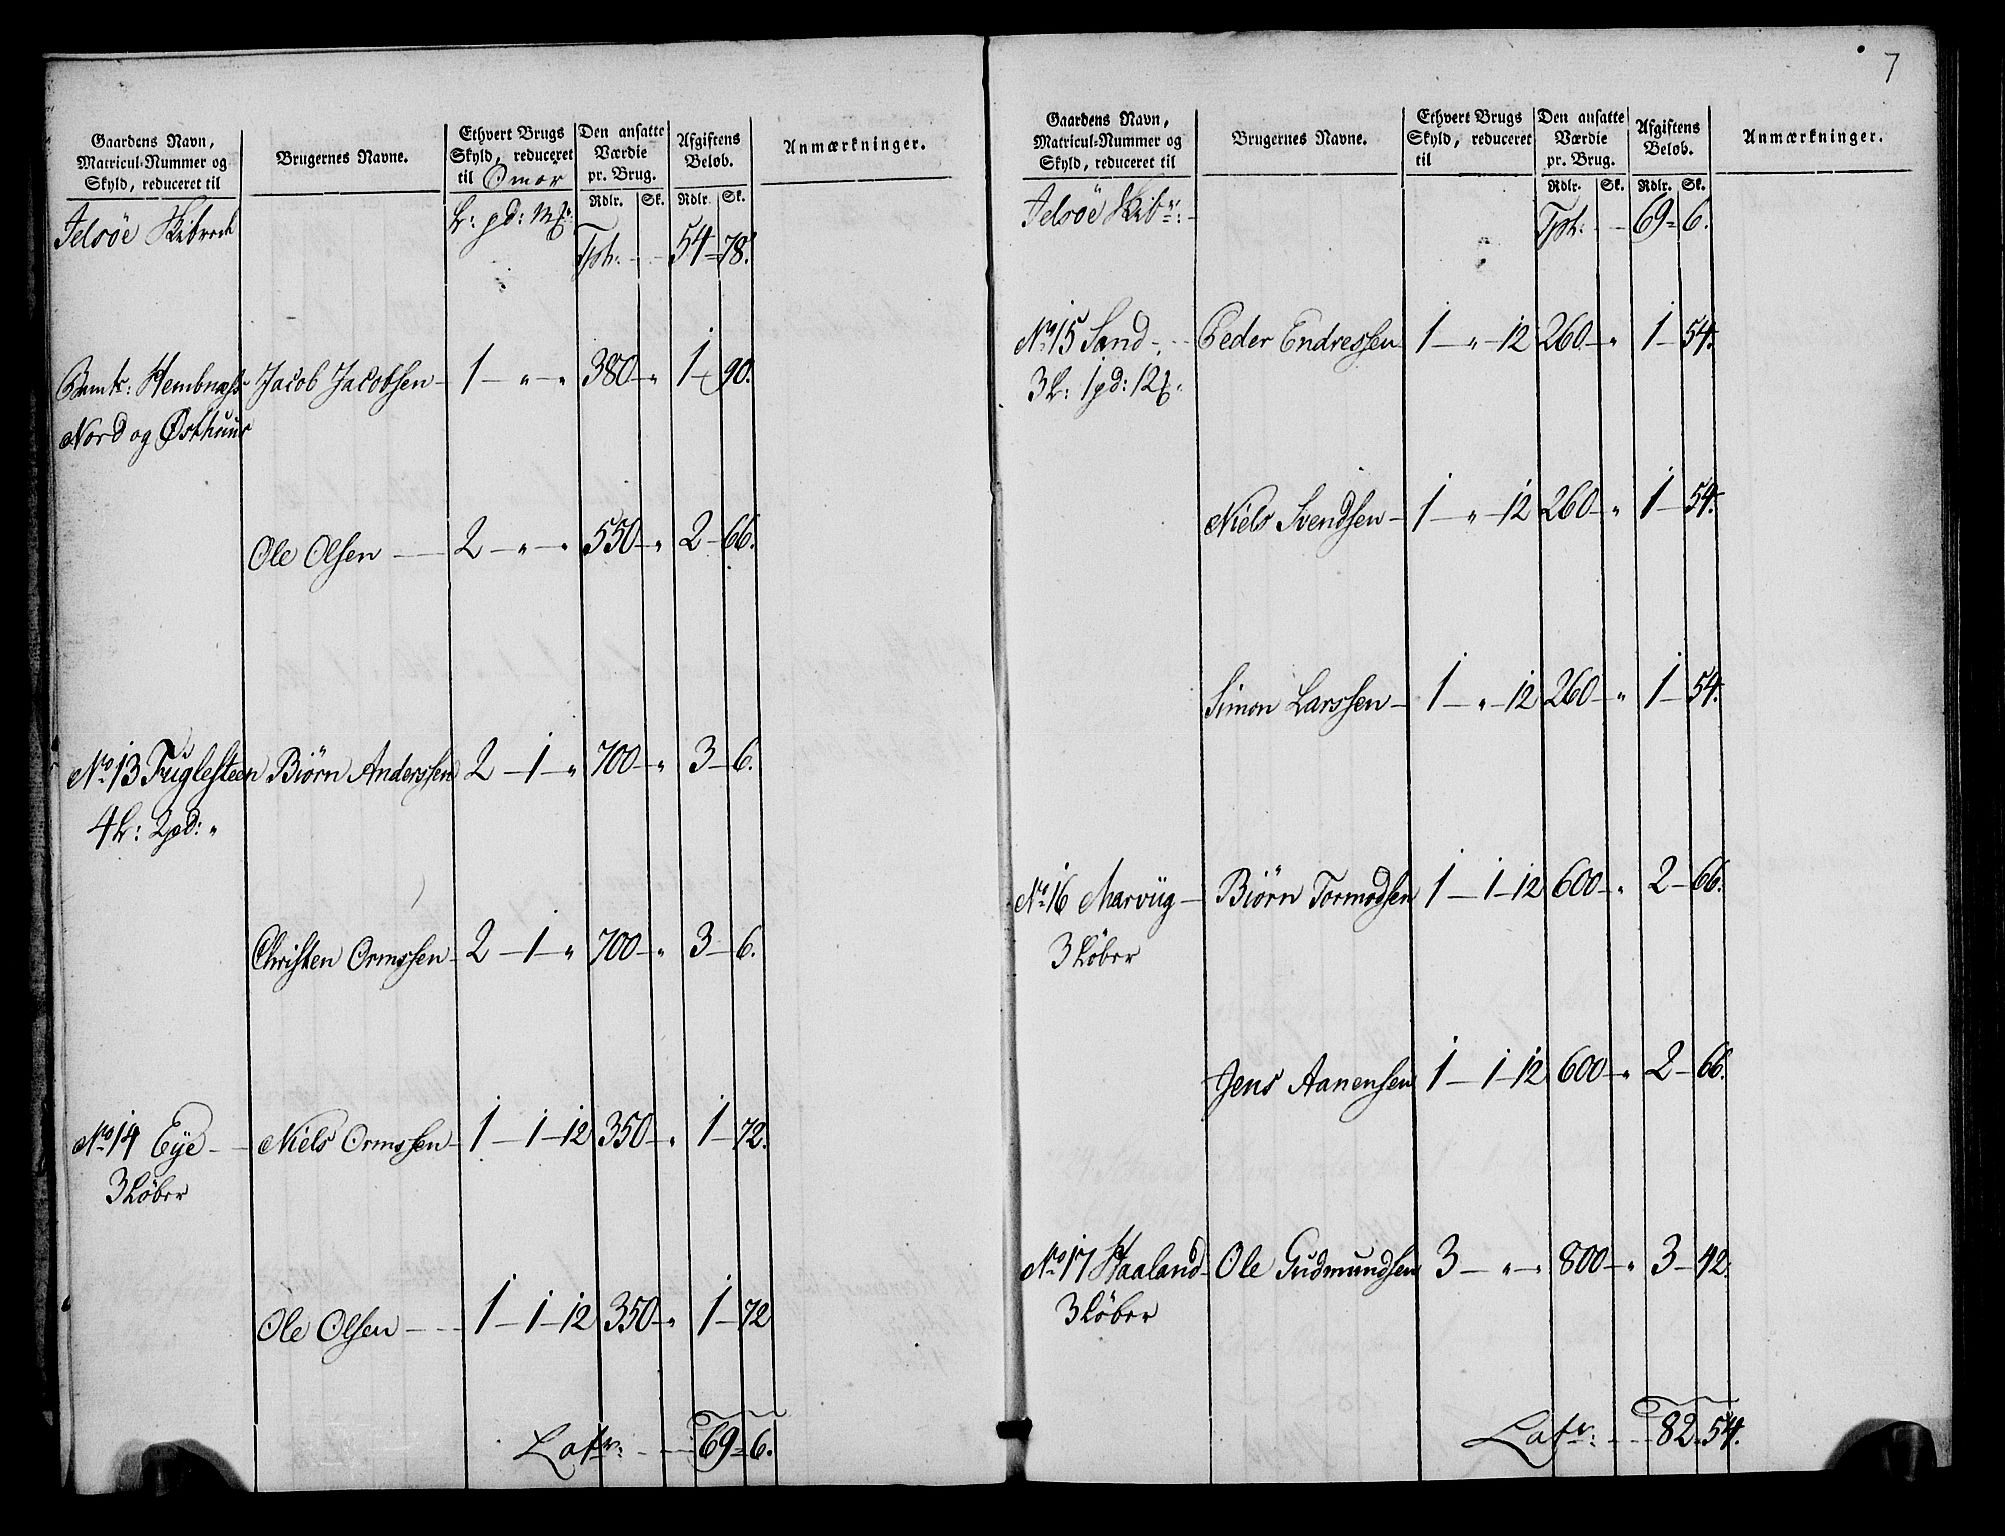 Gaardens Navn,
Matricul-Nummer og
Skyld, reduceret til
Brugernes Navne.
Ethvert Brugs
Skyld, reduceret
til Smør
Den ansatte
Værdie
pr. Brug.
Afgiftens
Beløb.
Anmærkninger.
Rdlr. Sk. Rdlr. Sk.
Jelsøe Skibrede
L: pd: Mk.
Tpt: 54 = 78.
Hembnæss Jacob Jacobsen 1 — " — " 380 — " 1 — 90.
Nord og Østhuus
Ole Olsen — 2 — " — " 550 — " 2 — 66.
No. 13 Fuglesteen Biørn Anderssen 2 — 1 — " 700 — " 3 — 6.
4 L: 2 pd: "
Christen Ormssen 2 — 1 — " 700 — " 3 — 6.
No. 14 Eÿe — Niels Ormssen 1 — 1 — 12 350 — " 1 — 72.
3 Løber
Ole Olsen — 1 — 1 — 12 350 — " 1 — 72
Latr: — 69 = 6.
7
Gaardens Navn,
Matricul-Nummer og
Skyld, reduceret til
Brugernes Navne.
Ethvert Brugs
Skyld, reduceret
til
Den ansatte
Værdie
pr. Brug.
Afgiftens
Beløb.
Anmærkninger.
Rdlr. Sk. Rdlr. Sk.
Jelsøe Skibr:
Tpt: 69 = 6.
No. 15 Sand — Peder Endressen 1 — " — 12 260 — " 1 — 54.
3 L: 1 pd: 12
Niels Svendsen — 1 — " — 12 260 — " 1 — 54.
Simon Larssen — 1 — " — 12 260 — " 1 — 54.
No. 16 Marviig — Biørn Tormodsen 1 — 1 — 12 600 — " 2 — 66.
3 Løber
Jens Aanensen 1 — 1 — 12 600 — " 2 — 66.
No. 17 Haaland — Ole Gudmundsen 3 — " — " 800 — " 3 — 42.
3 Løber
Latr: — 82 = 54.